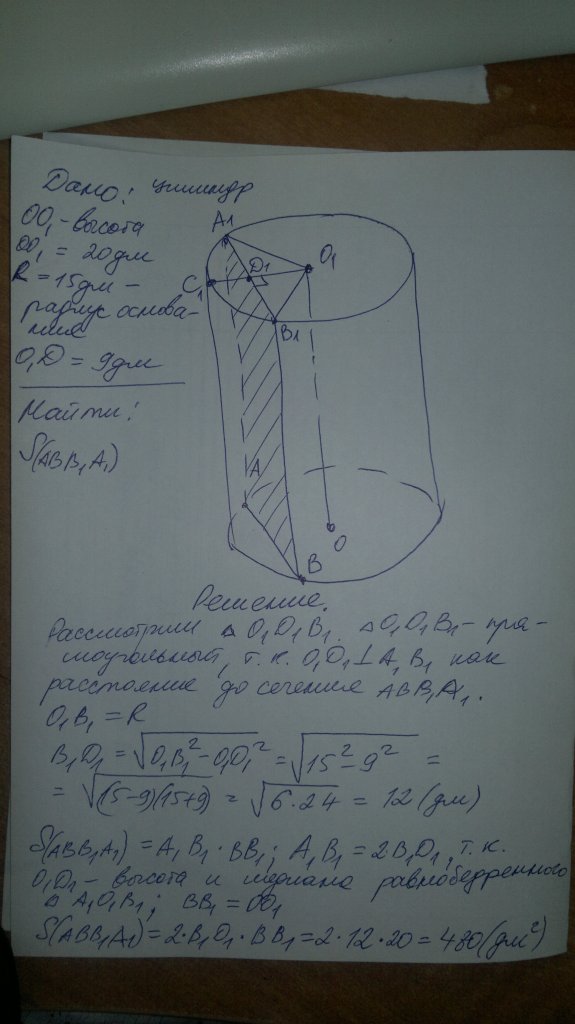 Дано: цилиндр
OO₁ - высота
OO₁ = 20 дм
R = 15 дм -
радиус основа-
ния
O₁D = 9 дм
Найти:
S(ABB₁A₁)
A1
O₁
D1
C₁
B1
A
O
B
Решение.
Рассмотрим △ O₁D₁B₁. △ O₁D₁B₁ - пря-
моугольный, т.к. O₁D₁ ⊥ A₁B₁ как
расстояние до сечения ABB₁A₁.
O₁B₁ = R
B₁D₁ = √(O₁B₁² - O₁D₁²) = √(15² - 9²) =
= √((15-9)(15+9)) = √(6·24) = 12 (дм)
S(ABB₁A₁) = A₁B₁ · BB₁; A₁B₁ = 2B₁D₁, т.к.
O₁D₁ - высота и медиана равнобедренного
△ A₁O₁B₁; BB₁ = OO₁
S(ABB₁A₁) = 2·B₁D₁·BB₁ = 2·12·20 = 480 (дм²)